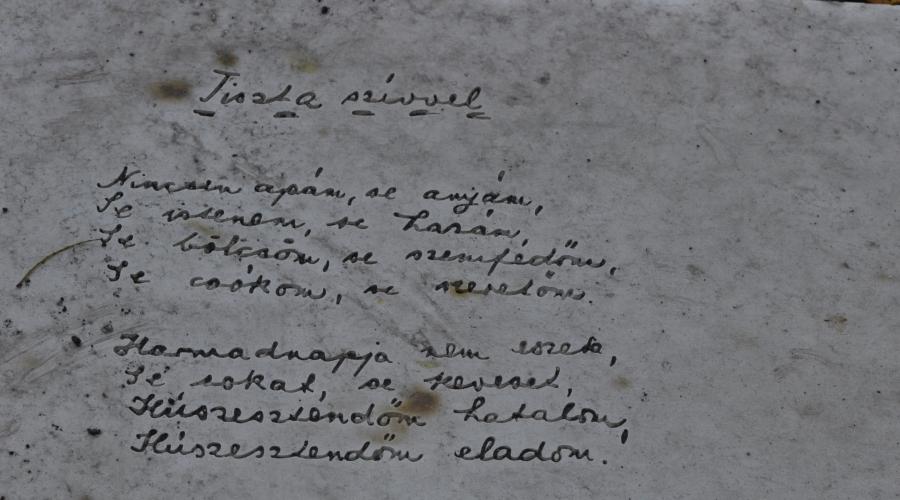 Tiszta szívvel
Nincsen apám, se anyám,
Se istenem, se hazám,
Se bölcsőm, se szemfedőm,
Se csókom, se szeretőm.
Harmadnapja nem eszek,
Se sokat, se keveset,
Húszesztendőm hatalom,
Húszesztendőm eladom.